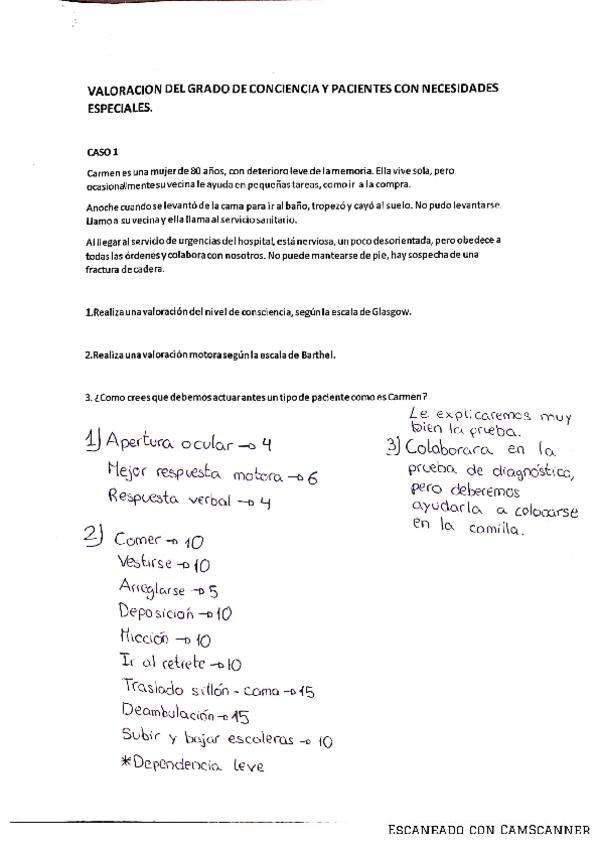 VALORACION DEL GRADO DE CONCIENCIA Y PACIENTES CON NECESIDADES
ESPECIALES.
CASO 1
Carmen es una mujer de 80 años, con deterioro leve de la memoria. Ella vive sola, pero
ocasionalmente su vecina le ayuda en pequeñas tareas, como ir a la compra.
Anoche cuando se levantó de la cama para ir al baño, tropezó y cayó al suelo. No pudo levantarse.
Llamo a su vecina y ella llama al servicio sanitario.
Al llegar al servicio de urgencias del hospital, está nerviosa, un poco desorientada, pero obedece a
todas las órdenes y colabora con nosotros. No puede mantearse de pie, hay sospecha de una
fractura de cadera.
1.Realiza una valoración del nivel de consciencia, según la escala de Glasgow.
2.Realiza una valoración motora según la escala de Barthel.
3. ¿Como crees que debemos actuar antes un tipo de paciente como es Carmen?
1) Apertura ocular → 4
Mejor respuesta motora → 6
Respuesta verbal → 4
2) Comer → 10
Vestirse → 10
Arreglarse → 5
Deposición → 10
Micción → 10
Ir al retrete → 10
Traslado sillón - cama → 15
Deambulación → 15
Subir y bajar escaleras → 10
*Dependencia leve
Le explicaremos muy
bien la prueba.
3) Colaborara en la
prueba de diagnóstico,
pero deberemos
ayudarla a colocarse
en la camilla.
ESCANEADO CON CAMSCANNER